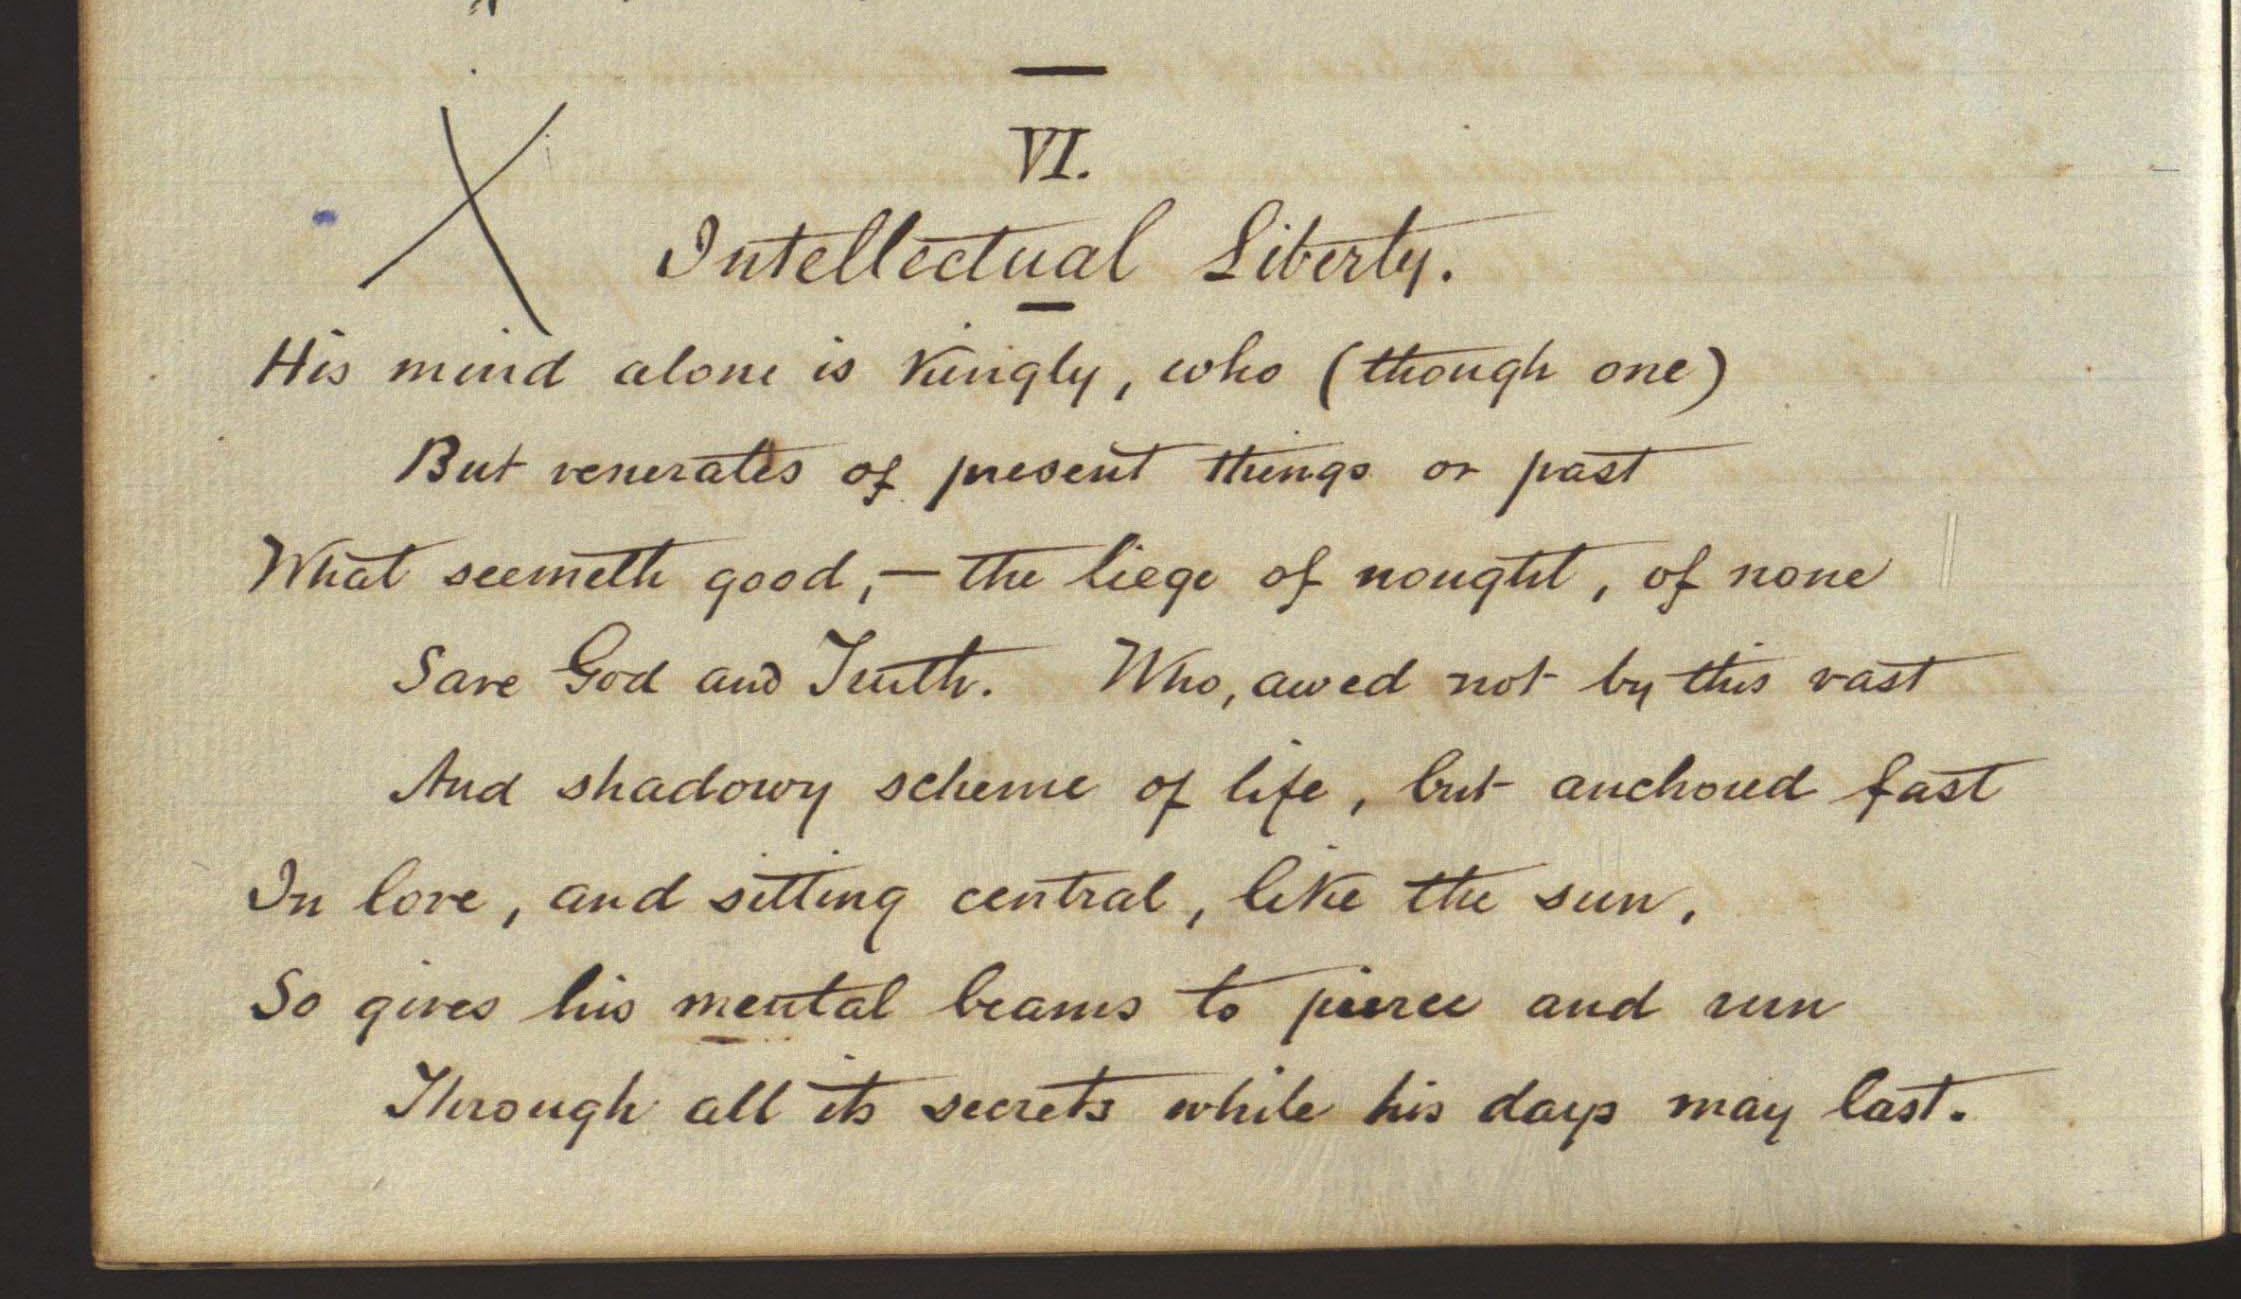 VI.
Intellectual Liberty.
His mind alone is kingly, who (though one)
But venerates of present things or past
What seemeth good, — the liege of nought, of none
Save God and Truth. Who, awed not by this vast
And shadowy scheme of life, but anchored fast
In love, and sitting central, like the sun,
So gives his mental beams to pierce and run
Through all its secrets while his days may last.